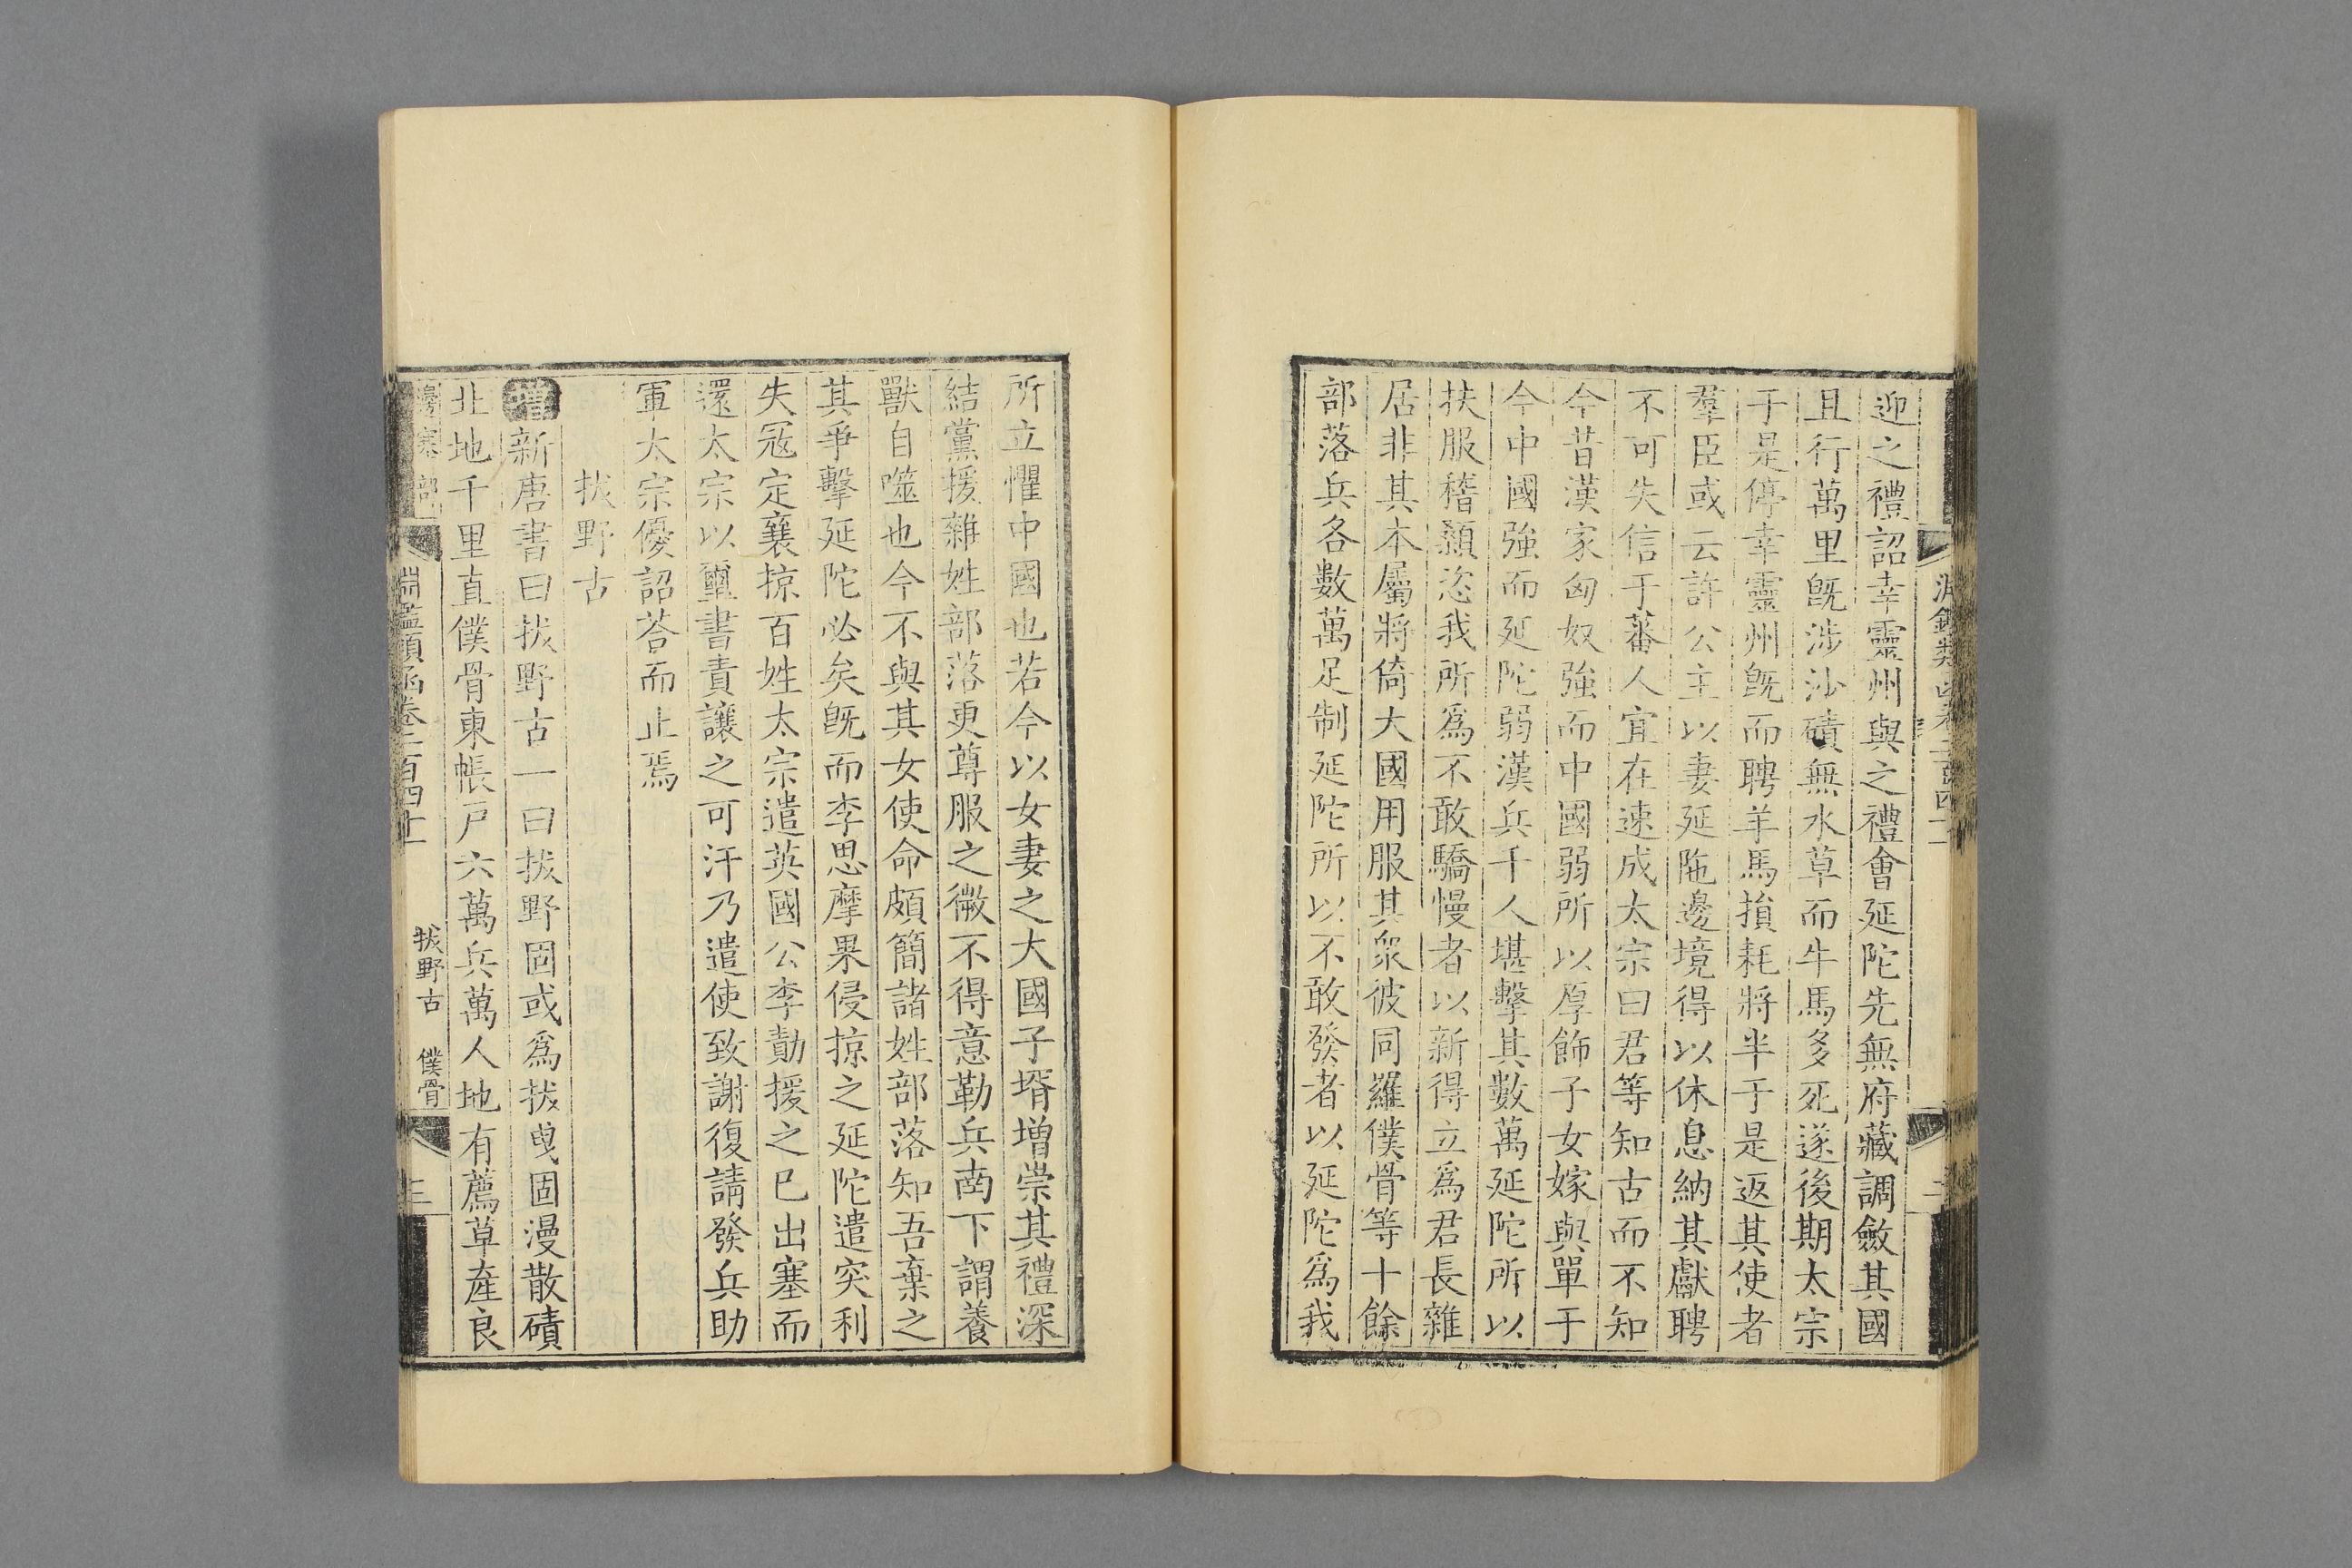 迎之禮詔幸靈州與之禮會延陀先無府藏調斂其國
且行萬里旣涉沙磧無水草而牛馬多死遂後期太宗
于是停幸靈州旣而聘羊馬損耗將半于是返其使者
羣臣或云許公主以妻延陁邊境得以休息納其獻聘
不可失信于蕃人宜在速成太宗曰君等知古而不知
今昔漢家匈奴強而中國弱所以厚飾子女嫁與單于
今中國強而延陀弱漢兵千人堪擊其數萬延陀所以
扶服稽顙恣我所爲不敢驕慢者以新得立爲君長雜
居非其本屬將倚大國用服其衆彼同羅僕骨等十餘
部落兵各數萬足制延陀所以不敢發者以延陀爲我
所立懼中國也若今以女妻之大國子壻增崇其禮深
結黨援雜姓部落更尊服之微不得意勒兵南下謂養
獸自噬也今不與其女使命頗簡諸姓部落知吾棄之
其爭擊延陀必矣旣而李思摩果侵掠之延陀遣突利
失寇定襄掠百姓太宗遣英國公李勣援之巳出塞而
還太宗以璽書責讓之可汗乃遣使致謝復請發兵助
軍太宗優詔荅而止焉
拔野古
增新唐書曰拔野古一曰拔野固或爲拔曳固漫散磧
北地千里直僕骨東帳戸六萬兵萬人地有薦草産良
邊塞部
淵鑑類函卷二百四十一
拔野古 僕骨
三